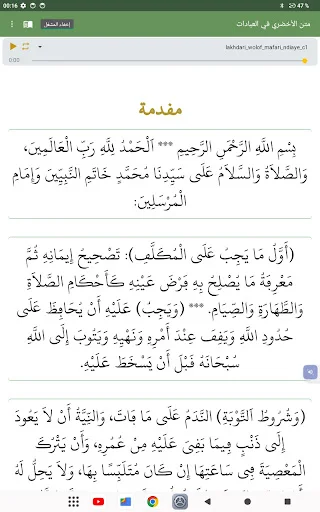 00:16
47 %
إخفاء المشغل
متن الأخضري في العبادات
lakhdari_wolof_mafari_ndiaye_c1
0:00
مقدمة
بِسْمِ اللَّهِ الرَّحْمَنِ الرَّحِيمِ *** اَلْحَمْدُ لِلَّهِ رَبِّ الْعَالَمِينَ،
وَالصَّلَاةُ وَالسَّلَامُ عَلَى سَيِّدِنَا مُحَمَّدٍ خَاتِمِ النَّبِيِّينَ وَإِمَامِ
الْمُرْسَلِينَ:
(أَوَّلُ مَا يَجِبُ عَلَى الْمُكَلَّفِ): تَصْحِيحُ إِيمَانِهِ ثُمَّ
مَعْرِفَةُ مَا يُصْلِحُ بِهِ فَرْضَ عَيْنِهِ كَأَحْكَامِ الصَّلَاةِ
وَالطَّهَارَةِ وَالصِّيَامِ. *** (وَيَجِبُ) عَلَيْهِ أَنْ يُحَافِظَ عَلَى
حُدُودِ اللَّهِ وَيَقِفَ عِنْدَ أَمْرِهِ وَنَهْيِهِ وَيَتُوبَ إِلَى اللَّهِ
سُبْحَانَهُ قَبْلَ أَنْ يَسْخَطَ عَلَيْهِ.
(وَشُرُوطُ التَّوْبَةِ) النَّدَمُ عَلَى مَا فَاتَ، وَالنِّيَّةُ أَنْ لَا يَعُودَ
إِلَى ذَنْبٍ فِيمَا بَقِيَ عَلَيْهِ مِنْ عُمُرِهِ، وَأَنْ يَتْرُكَ
الْمَعْصِيَةَ فِي سَاعَتِهَا إِنْ كَانَ مُتَلَبِّسًا بِهَا، وَلَا يَحِلُّ لَهُ